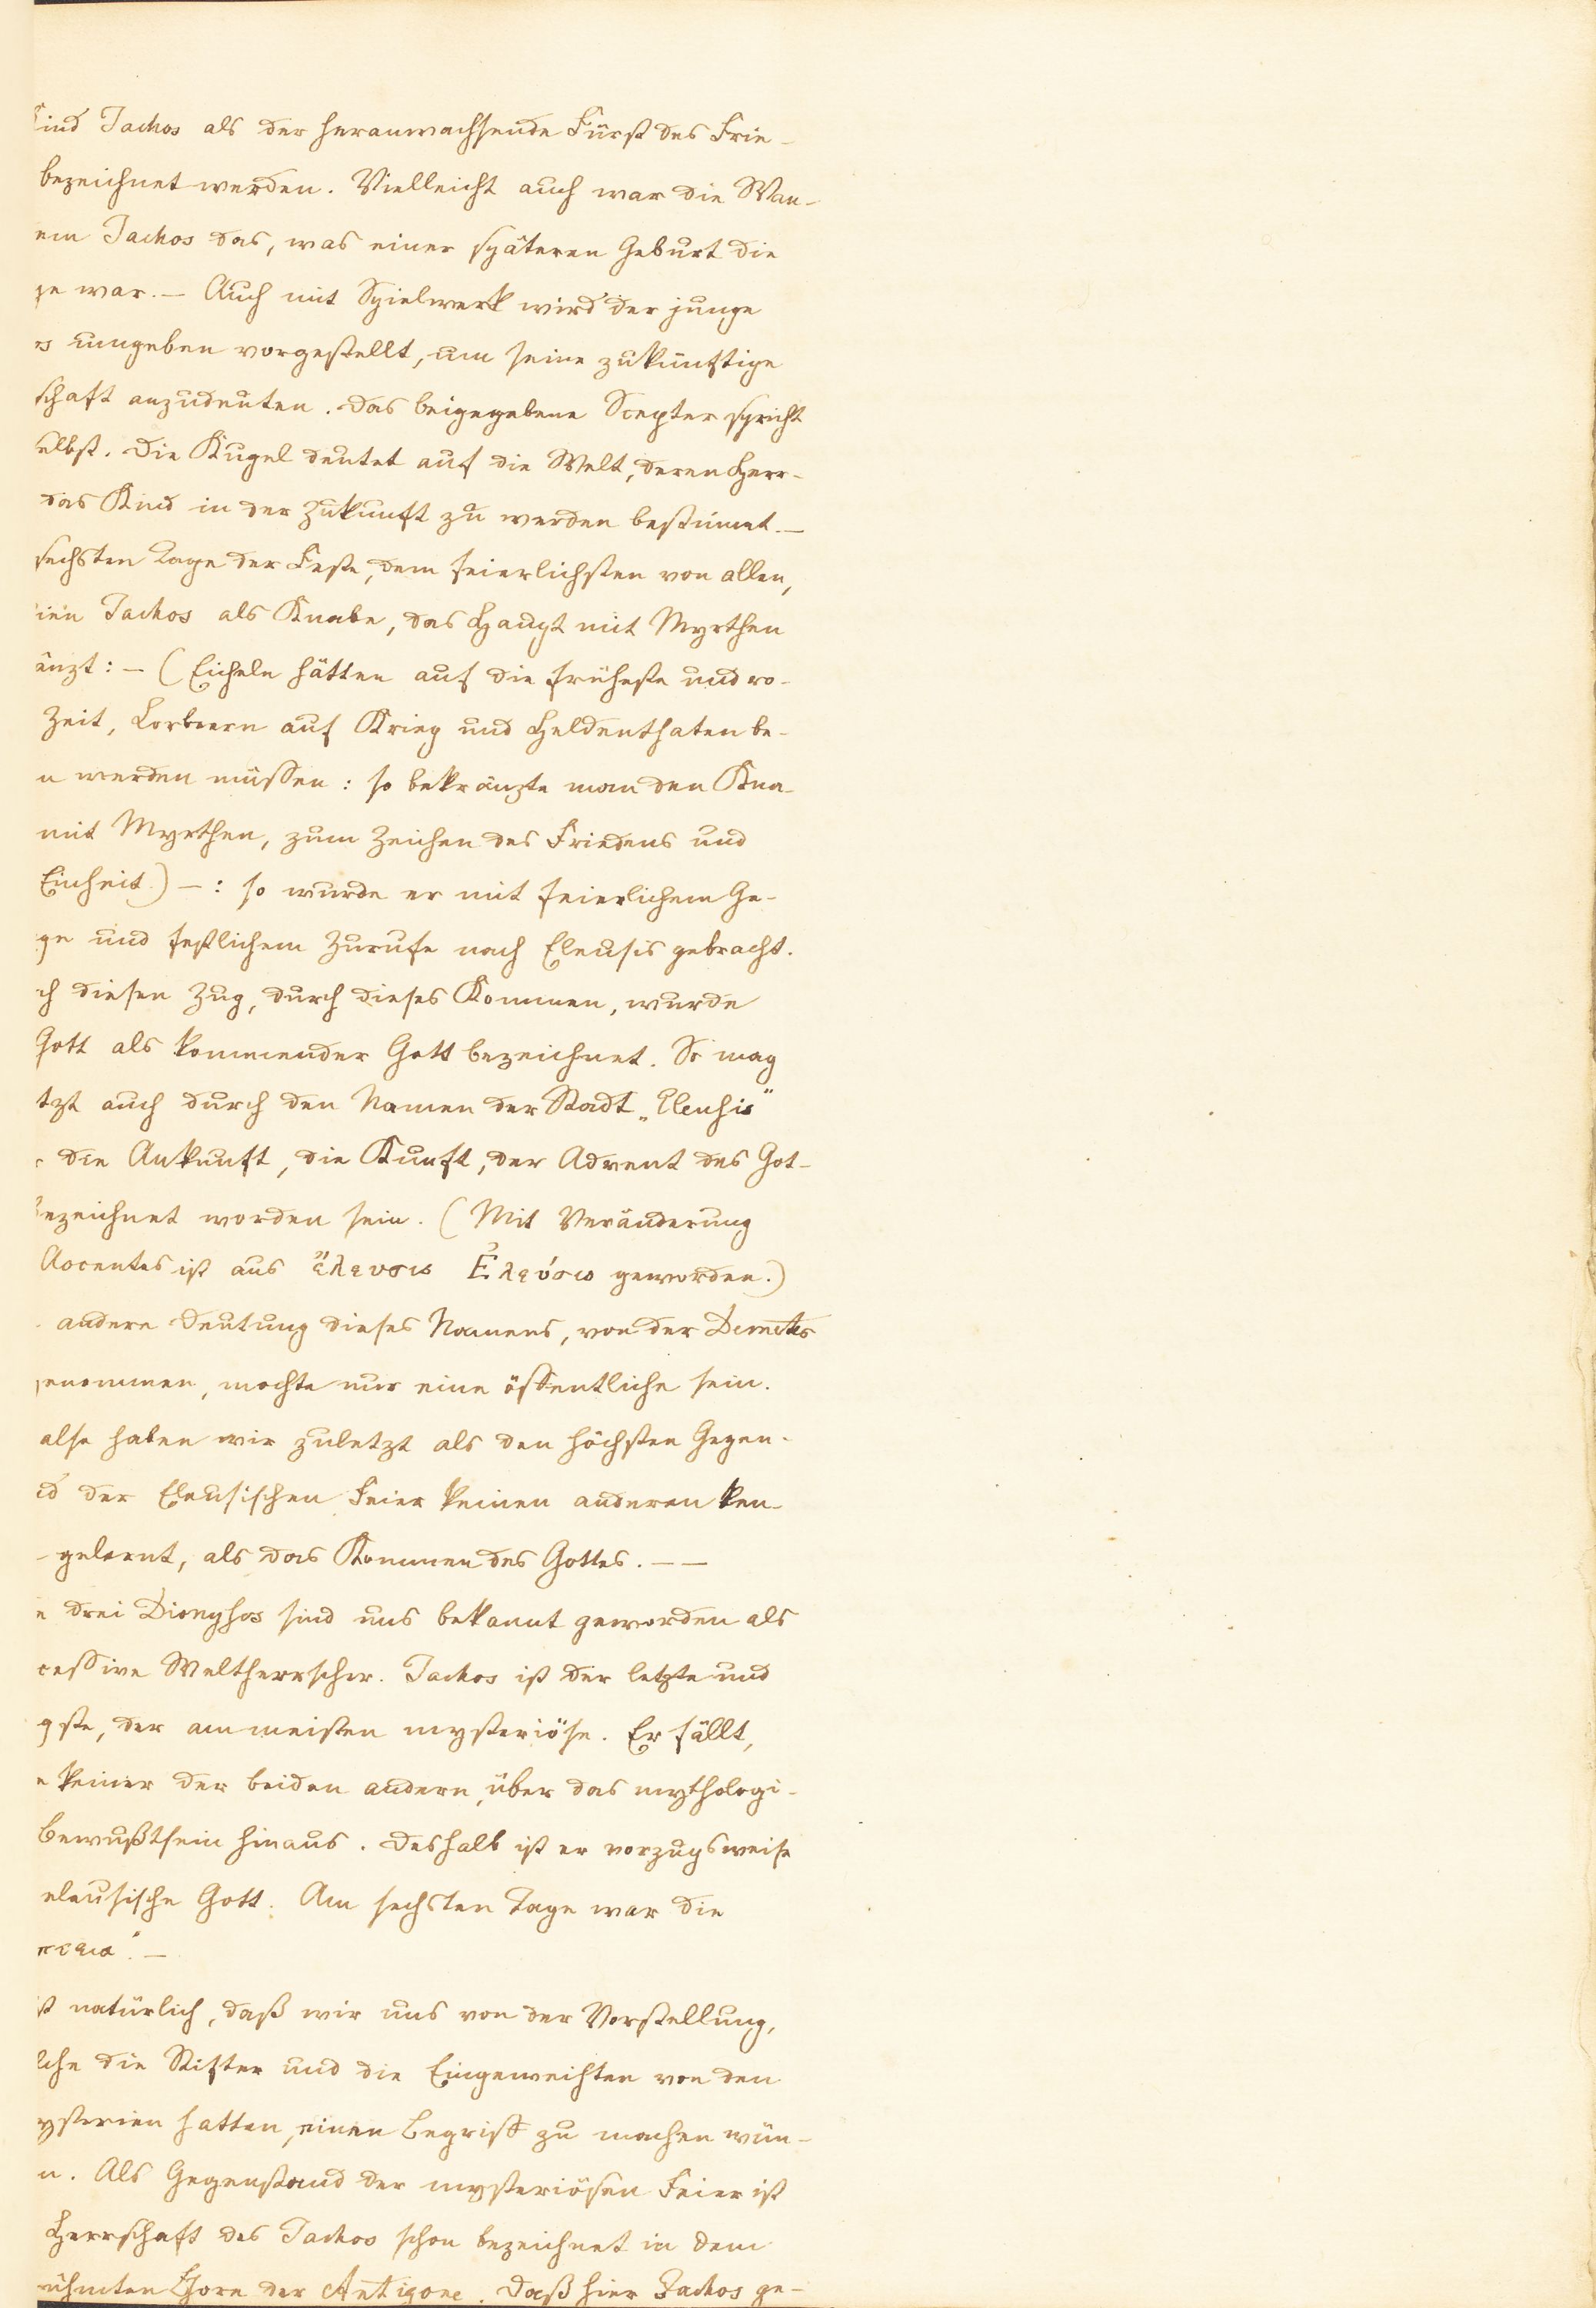 Kind Jackos als der heranwachsende Fürst des Frie-
bezeichnet werden. Vielleicht auch war die Wan-
em Jackos das, was einer späteren Geburt die
ge war. — Auch mit Spielwerk wird der junge
s umgeben vorgestellt, um seine zukünftige
schaft anzudeuten. Das beigegebene Scepter spricht
elbst. Die Kugel deutet auf die Welt, deren Herr-
das Kind in der Zukunft zu werden bestimmt. —
sechsten Tage der Feste, dem feierlichsten von allen,
ien Jackos als Knabe, das Haupt mit Myrthen
änzt: — (Eicheln hätten auf die früheste und ro-
Zeit, Lorbeern auf Krieg und Heldenthaten be-
n werden müssen: so bekränzte man den Kna-
mit Myrthen, zum Zeichen des Friedens und
Einheit.) —: so wurde er mit feierlichem Ge-
ge und festlichem Zurufe nach Eleusis gebracht.
ch diesen Zug, durch dieses Kommen, wurde
Gott als kommender Gott bezeichnet. So mag
tzt auch durch den Namen der Stadt „Eleusis"
die Ankunft, die Kunft, der Advent des Got-
bezeichnet worden sein. (Mit Veränderung
Accentes ist aus ἔλευσις Ἐλεύσις geworden.)
andere Deutung dieses Namens, von der Demeter
genommen, mochte nur eine öffentliche sein.
also haben wir zuletzt als den höchsten Gegen-
d der Eleusischen Feier keinen anderen ken-
- gelernt, als das Kommen des Gottes. — —
e drei Dionysos sind uns bekannt geworden als
cessive Weltherrscher. Jackos ist der letzte und
gste, der am meisten mysteriöse. Er fällt,
e keiner der beiden andern, über das mythologi-
Bewußtsein hinaus. Deshalb ist er vorzugsweise
eleusische Gott. Am sechsten Tage war die
ist natürlich, daß wir uns von der Vorstellung,
lche die Stifter und die Eingeweihten von den
ysterien hatten, einen Begriff zu machen wün-
n. Als Gegenstand der mysteriösen Feier ist
Herrschaft des Jackos schon bezeichnet in dem
ühmten Chore der Antigone. Daß hier Jackos ge-